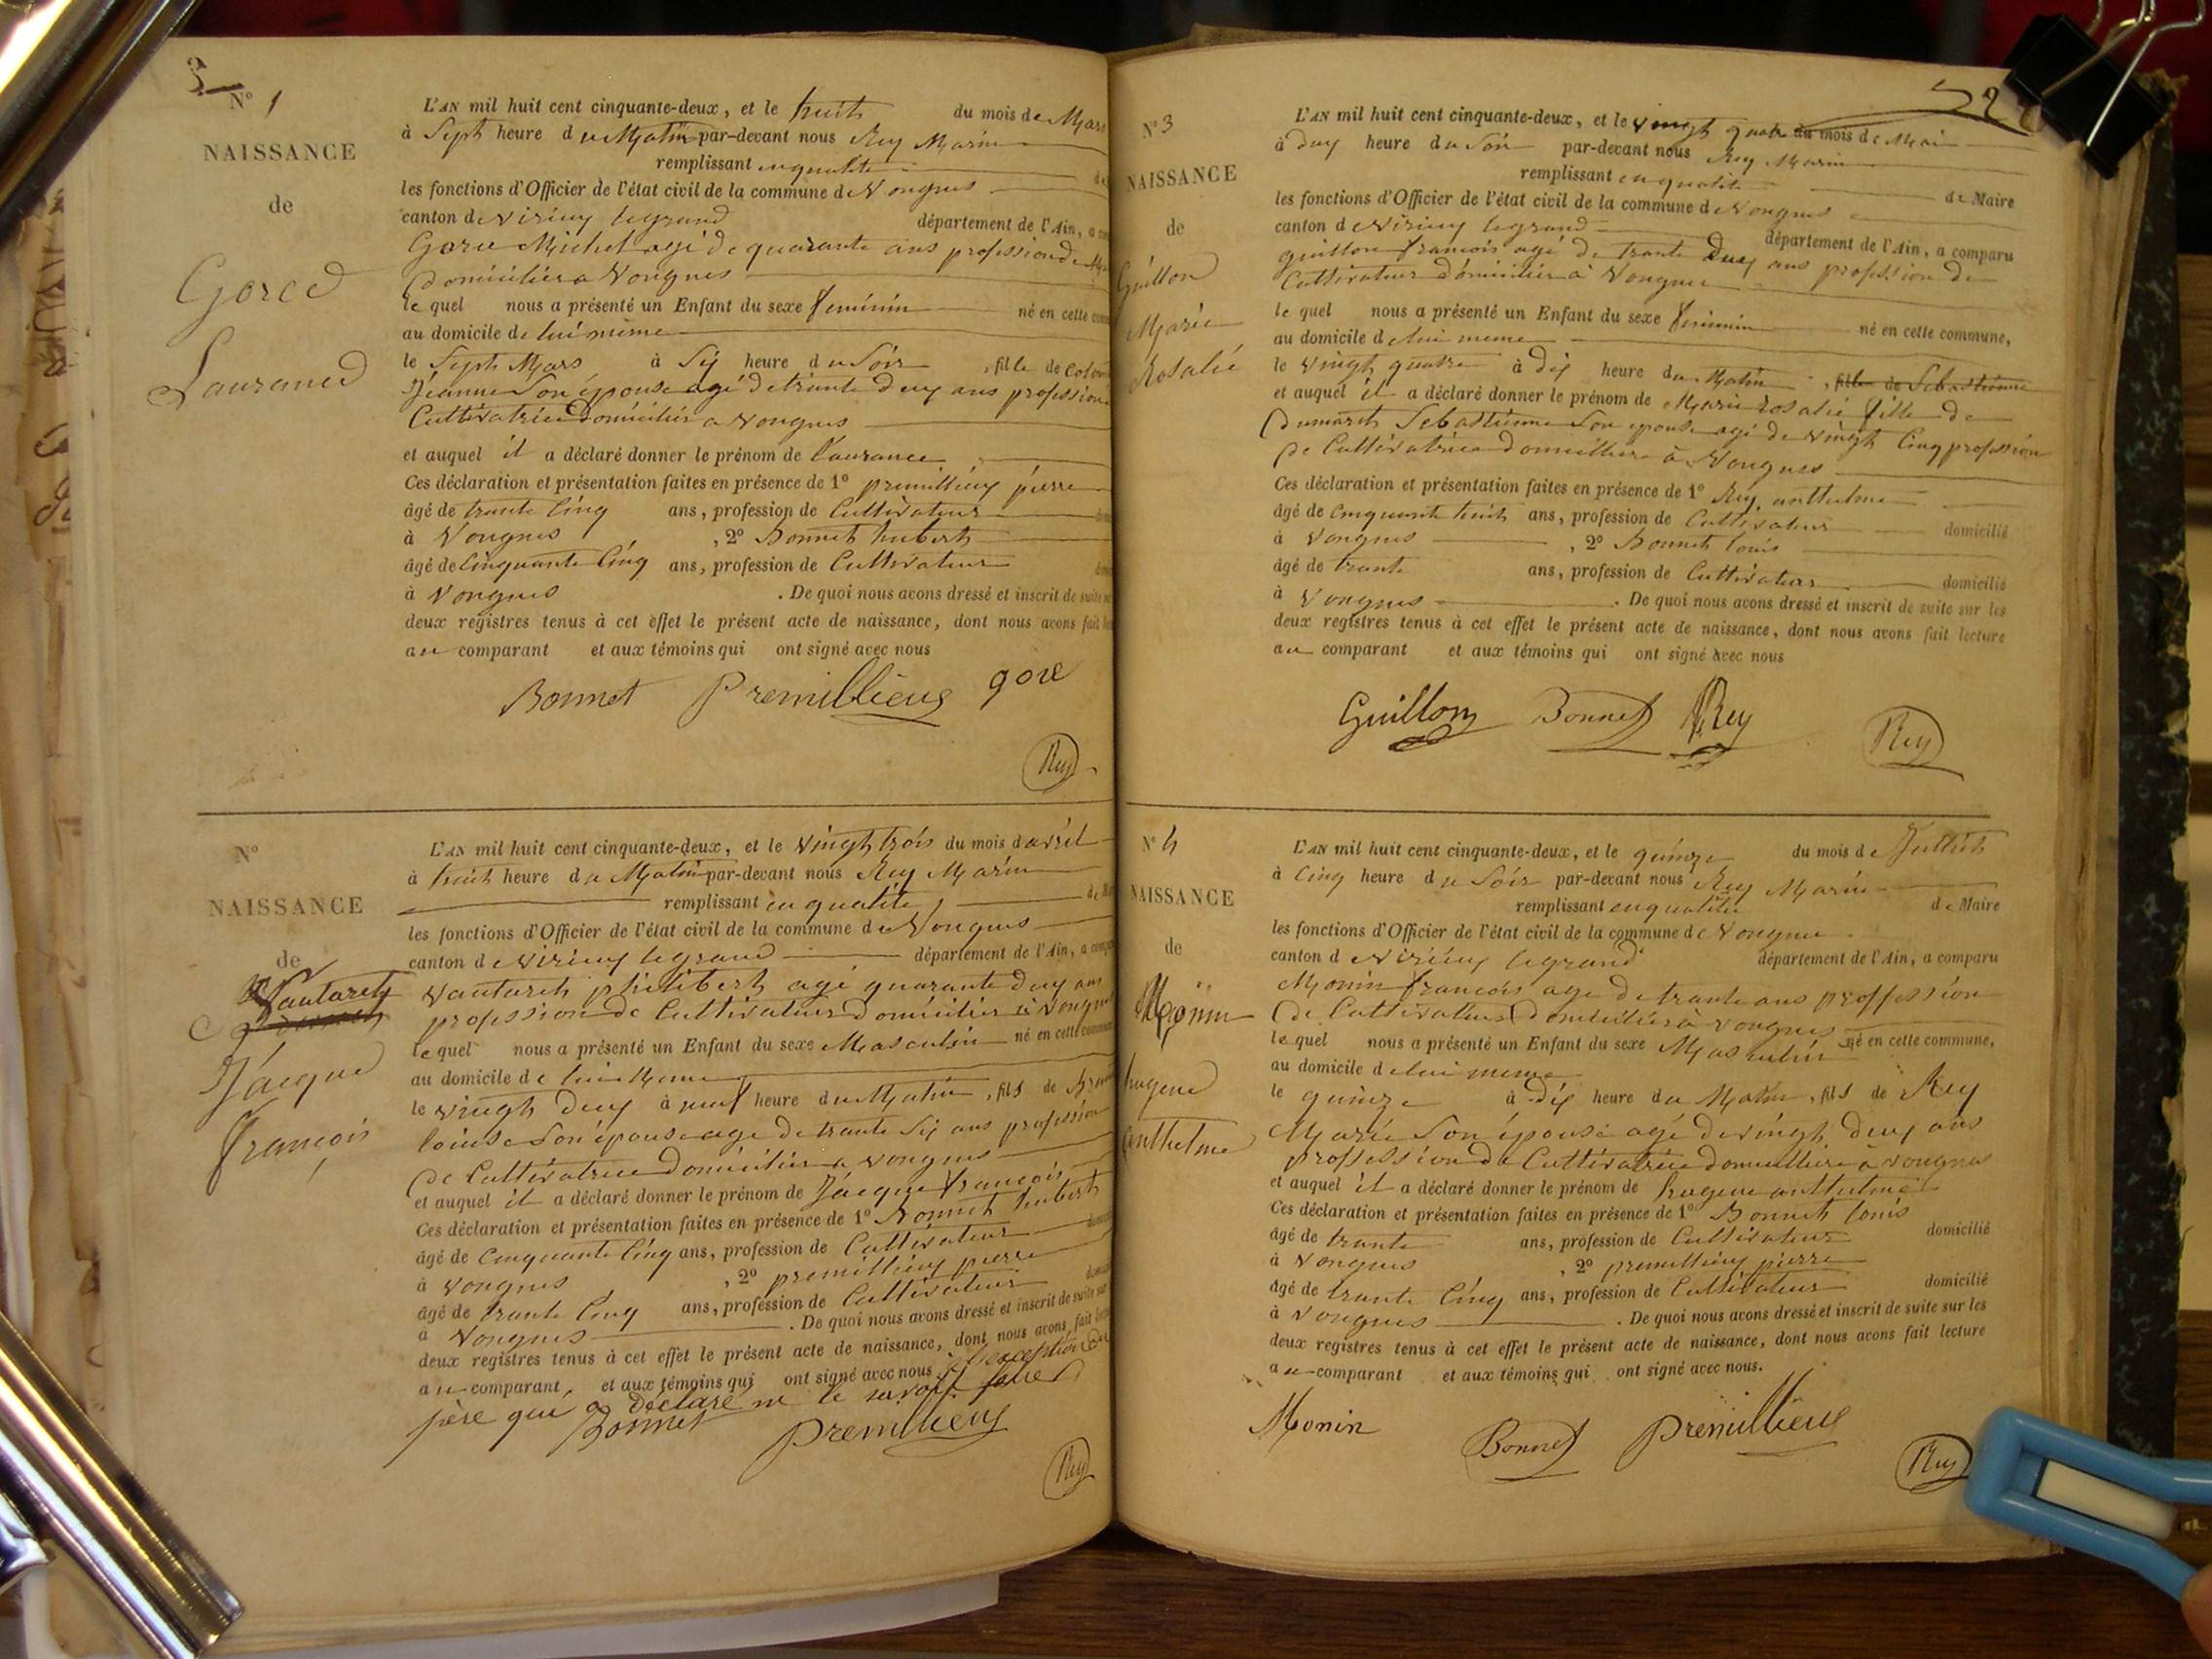 N° 1
NAISSANCE
de
Gorce
Laurance
L'AN mil huit cent cinquante-deux, et le huit du mois de Mars
à Sept heure du Matin par-devant nous Rey Marin
remplissant en qualité
les fonctions d'Officier de l'état civil de la commune de Vongnes
canton de Virieuy legrand département de l'Ain, a
Michel agé de quarante ans profession de
domicilier a Vongnes
le quel nous a présenté un Enfant du sexe feminin né en cette
au domicile de lui même
le Sept Mars à Six heure du Soir, fille de
Jeanne Son épouse agé de trante deux ans profession
Cultivatrice domicilier a Vongnes
et auquel il a déclaré donner le prénom de Laurance
Ces déclaration et présentation faites en présence de 1° premillieux pierre
âgé de trante Cinq ans, profession de Cultivateur
à Vongnes, 2° Bonnet hubert
âgé de Cinquante Cinq ans, profession de Cultivateur
à Vongnes. De quoi nous avons dressé et inscrit de suite
deux registres tenus à cet effet le présent acte de naissance, dont nous avons fait
au comparant et aux témoins qui ont signé avec nous
Bonnet Premillieux
Rey
N°
NAISSANCE
de
Vautaret
Jacque
François
L'AN mil huit cent cinquante-deux, et le vingt trois du mois d'avril
à huit heure du Matin par-devant nous Rey Marin
remplissant en qualité
les fonctions d'Officier de l'état civil de la commune de Vongnes
canton de Virieuy legrand département de l'Ain, a
Vautaret philibert agé quarante deux ans
profession de Cultivateur domicilier à Vongnes
le quel nous a présenté un Enfant du sexe Masculin né en cette commune
au domicile de lui Meme
le vingt deux à neuf heure du Matin, fils de
louise Son épouse age de trante Six ans profession
de Cultivatrice domicilier a Vongnes
et auquel il a déclaré donner le prénom de Jacque francois
Ces déclaration et présentation faites en présence de 1° Bonnet hubert
âgé de Cinquante Cinq ans, profession de Cultivateur
à Vongnes, 2° premillieux pierre
âgé de trante Cinq ans, profession de Cultivateur
à Vongnes. De quoi nous avons dressé et inscrit de suite sur
deux registres tenus à cet effet le présent acte de naissance, dont nous avons fait
au comparant et aux témoins qui ont signé avec nous à l'exception du
père qui a déclaré ne le savoir faire
Bonnet Premillieux
Rey
N° 3
NAISSANCE
de
Guillon
Marie
Rosalie
L'AN mil huit cent cinquante-deux, et le vingt quatre du mois de Mai
à deux heure du Soir par-devant nous Rey Marin
remplissant en qualité de Maire
les fonctions d'Officier de l'état civil de la commune de Vongnes
canton de Virieuy legrand département de l'Ain, a comparu
guillon francois agé de trante deux ans profession de
Cultivateur domicilier à Vongnes
le quel nous a présenté un Enfant du sexe feminin né en cette commune,
au domicile de lui meme
le vingt quatre à dix heure du Matin, fille de Sebastienne
et auquel il a déclaré donner le prénom de Marie rosalie fille de
Sebastienne Son epouse agé de vingt Cinq profession
de Cultivatrice domicilliere à Vongnes
Ces déclaration et présentation faites en présence de 1° Rey anthelme
âgé de cinquante huit ans, profession de Cultivateur domicilié
à Vongnes, 2° Bonnet louis
âgé de trante ans, profession de Cultivateur domicilié
à Vongnes. De quoi nous avons dressé et inscrit de suite sur les
deux registres tenus à cet effet le présent acte de naissance, dont nous avons fait lecture
au comparant et aux témoins qui ont signé avec nous
Guillon Bonnet Rey
Rey
N° 4
NAISSANCE
de
Monin
hugene
anthelme
L'AN mil huit cent cinquante-deux, et le quinze du mois de Juillet
à Cinq heure du Soir par-devant nous Rey Marin
remplissant en qualité de Maire
les fonctions d'Officier de l'état civil de la commune de Vongnes
canton de Virieuy legrand département de l'Ain, a comparu
Monin francois age de trante ans proffession
de Cultivateur domicilier à Vongnes
le quel nous a présenté un Enfant du sexe Masculin né en cette commune,
au domicile de lui meme
le quinze à dix heure du Matin, fils de Rey
Marie Son épouse agé de vingt deux ans
proffession de Cultivatrice domicilliere à Vongnes
et auquel il a déclaré donner le prénom de hugene anthelme
Ces déclaration et présentation faites en présence de 1° Bonnet louis
âgé de trante ans, profession de Cultivateur domicilié
à Vongnes, 2° premillieux pierre
âgé de trante Cinq ans, profession de Cultivateur domicilié
à Vongnes. De quoi nous avons dressé et inscrit de suite sur les
deux registres tenus à cet effet le présent acte de naissance, dont nous avons fait lecture
au comparant et aux témoins qui ont signé avec nous.
Monin Bonnet Premillieux
Rey